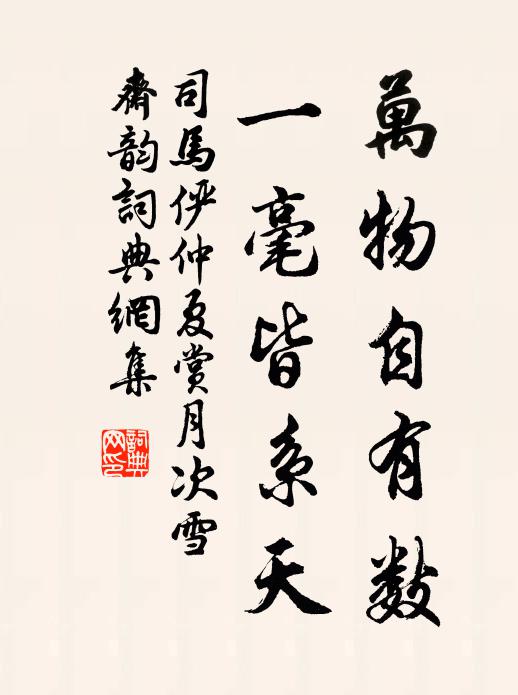 萬物自有数
一毫皆系天
司馬伊仲夏賞月次雪
齋韵詞典網集
詞典網印